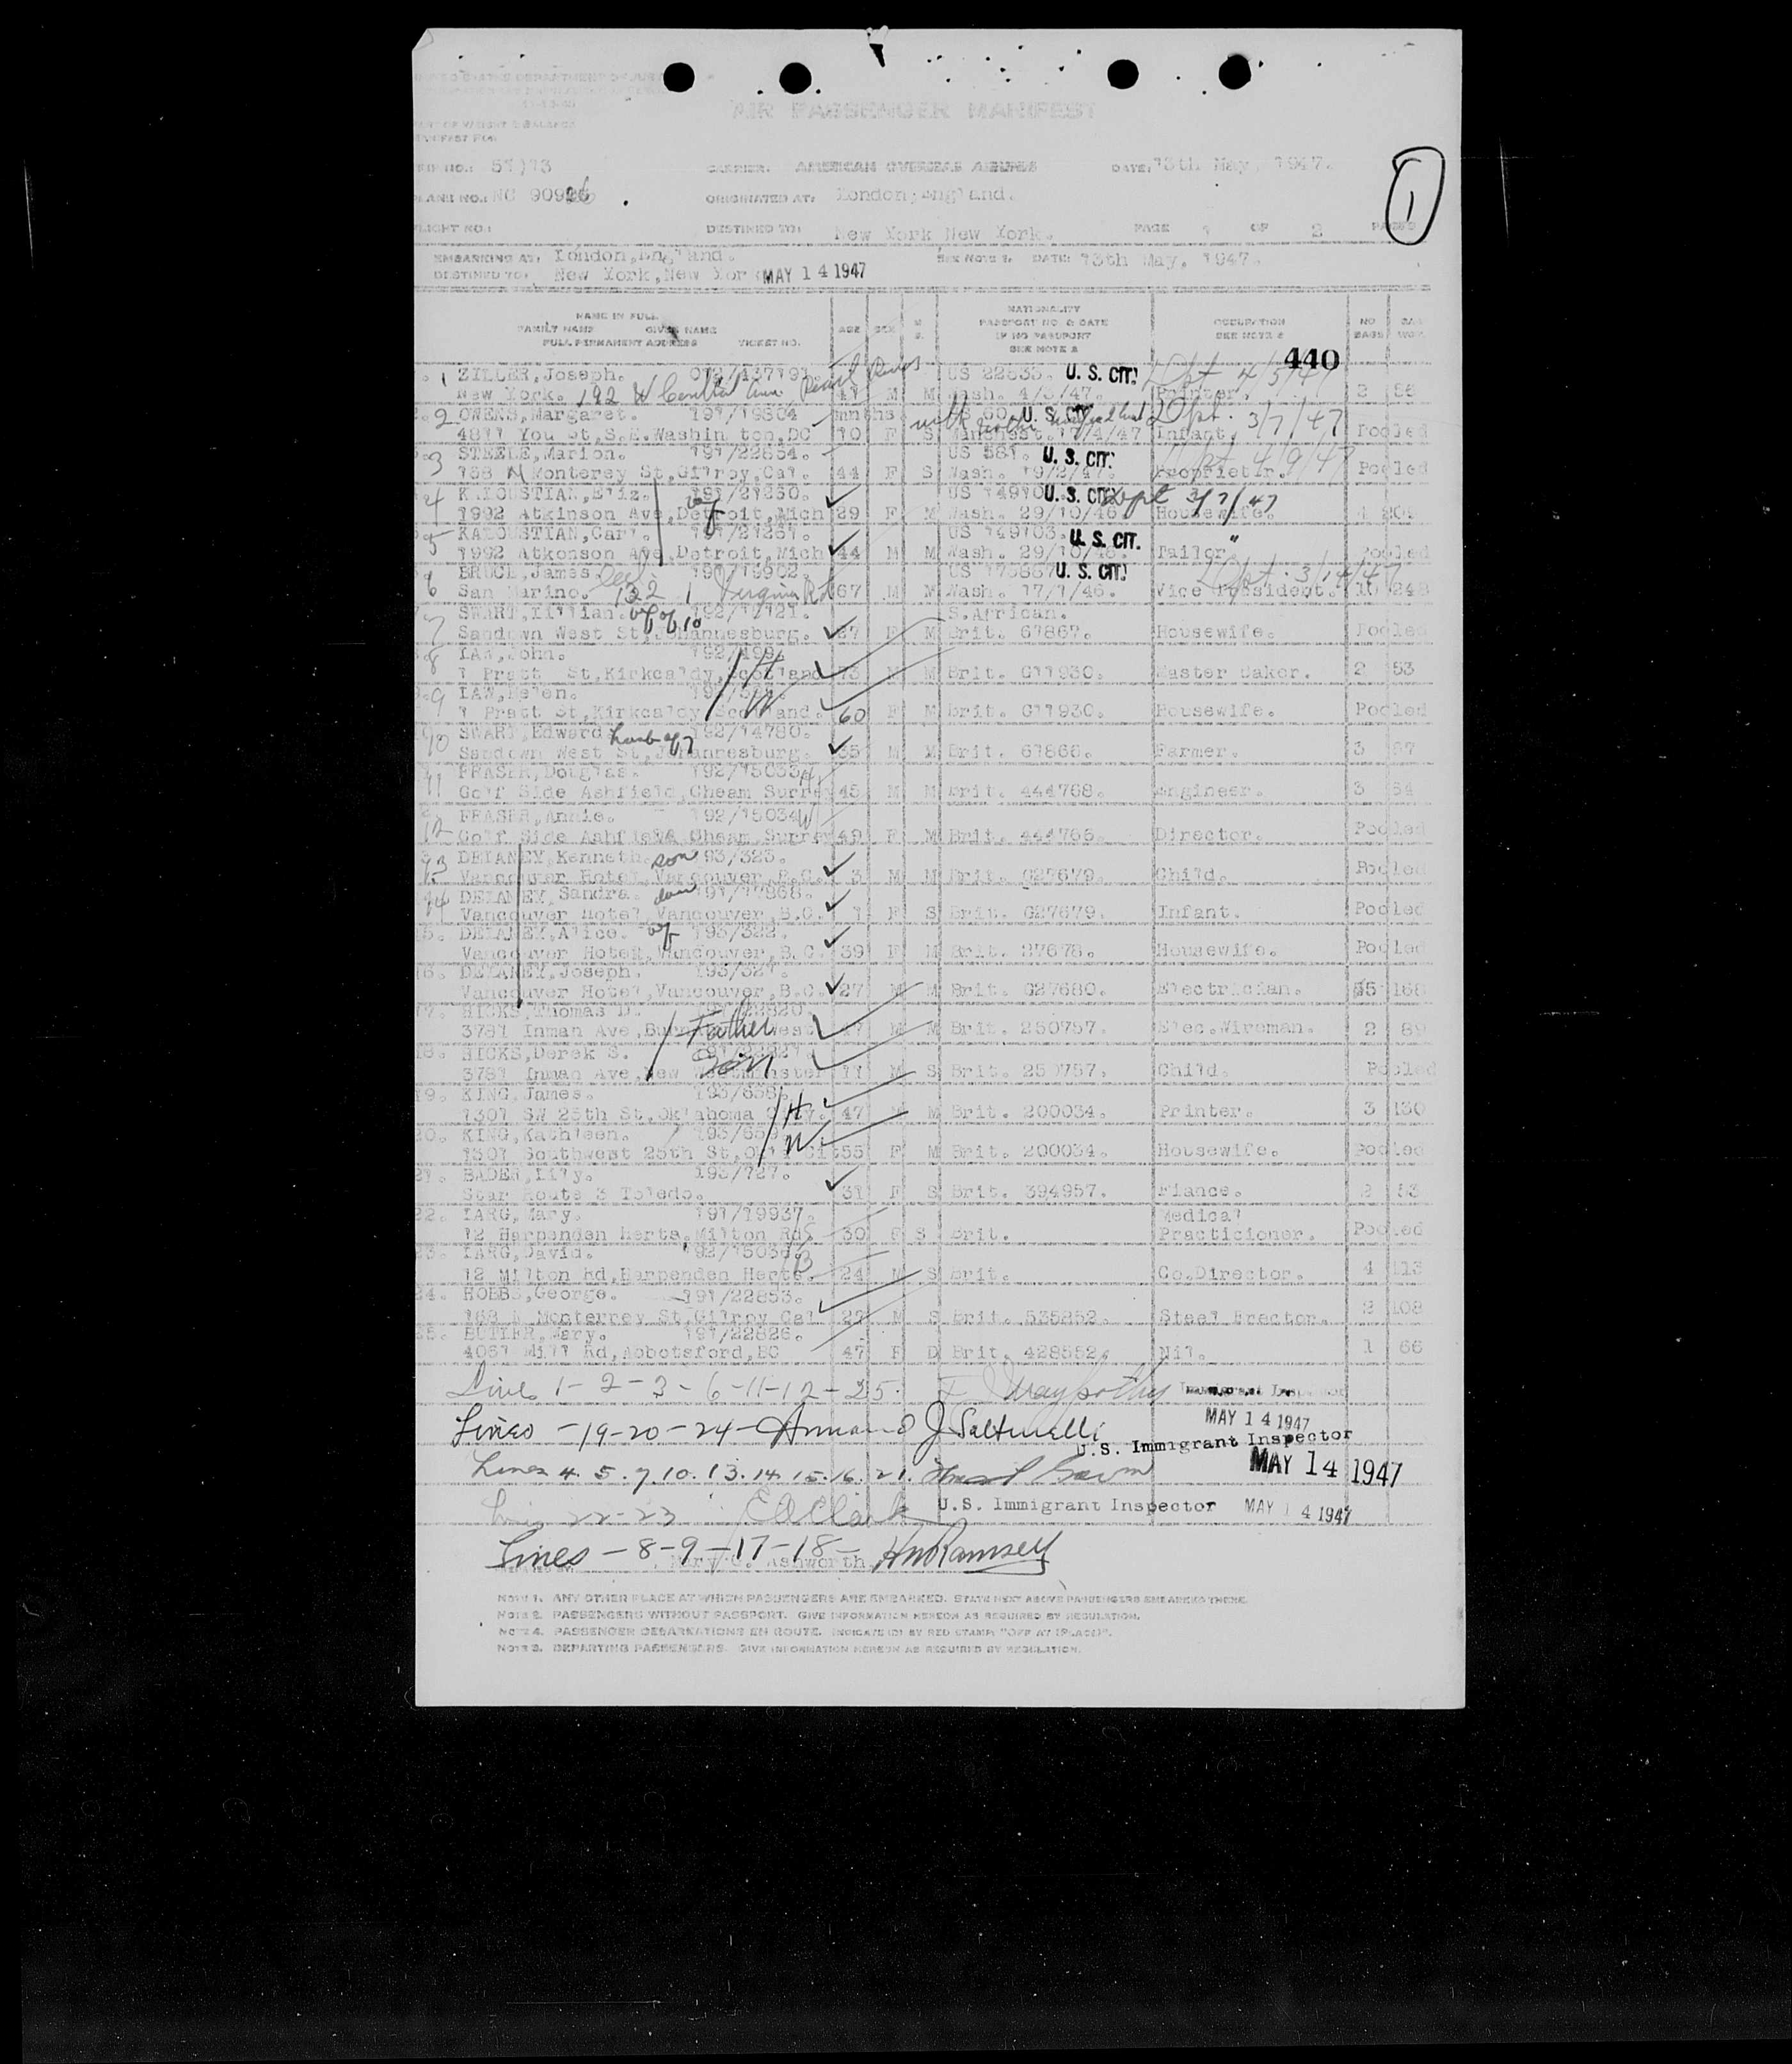 UNITED STATES DEPARTMENT OF JUSTICE
AIR PASSENGER MANIFEST
PART OF WEIGHT & BALANCE
MANIFEST FOR
NO.: 51/13 CARRIER: AMERICAN OVERSEAS AIRLINES DATE: 13th May, 1947.
PLANE NO.: NC 90926 ORIGINATED AT: London, England.
1
FLIGHT NO.: DESTINED TO: New York New York. PAGE 1 OF 2 PAGES
EMBARKING AT: London, England. SEE NOTE 1. DATE: 13th May, 1947.
DESTINED TO: New York, New Yor MAY 14 1947
NAME IN FULL
FAMILY NAME GIVEN NAME
FULL PERMANENT ADDRESS TICKET NO.
AGE SEX M S
NATIONALITY
PASSPORT NO. & DATE
IF NO PASSPORT
SEE NOTE 2
OCCUPATION
SEE NOTE 2
NO BAGS
BAG WGT.
440
1 ZILLER, Joseph. US 22835. U. S. CIT. Dpt 4/5/47
New York. 192 W Central Ave Pearl River 47 M M Wash. 4/3/47. Printer. 3 56
2 OWENS, Margaret. 191/19304 mnths U. S. CIT. Dpt. 3/7/47
4811 You St, S.E. Washin ton, DC 10 F S 17/4/47 Infant. Pooled
3 STEELE, Marion. 191/22854. US 581. U. S. CIT. Dpt 4/9/47
168 N Monterey St, Gilroy, Cal. 44 F S Wash. 19/2/47. Proprietir. Pooled
4 KALOUSTIAN, Eliz. wf 191/21260. US 14910 U. S. CIT. Dept 3/7/47
1992 Atkinson Ave, Detroit, Mich 29 F M Wash. 29/10/46 Housewife.
5 KALOUSTIAN, Carl. 191/21261. US 149103. U. S. CIT. "
1992 Atkonson Ave, Detroit, Mich 44 M M Wash. 29/10/46. Tailor. Pooled
6 BRUCE, James 191/19902. U. S. CIT. Dpt. 3/14/47
San Marino. Virginia Rd 67 M M Wash. 17/7/46. Vice President. 10 248
7 SWART, Lillian. wf of 10 192/17121. S. African.
Sandown West St, Johannesburg. 37 F M Brit. 61867. Housewife. Pooled
8 LAW, John. 192/499. H
1 Pratt St, Kirkcaldy, Scotland 73 M M Brit. G11930. Master Baker. 2 53
9 LAW, Helen. W
1 Pratt St, Kirkcaldy Scotland. 60 F M Brit. G11930. Housewife. Pooled
10 SWART, Edward husb of 7 192/14780.
Sandown West St, Johannesburg. 35 M M Brit. 61866. Farmer. 3 87
11 FRASER, Douglas. 192/15033 H
Golf Side Ashfield, Cheam Surrey 45 M M Brit. 444768. Engineer. 3 84
12 FRASER, Annie. 192/15034 W
Golf Side Ashfield, Cheam, Surrey 49 F M Brit. 444765. Director. Pooled
13 DELANEY, Kenneth. son 193/323.
Vancouver Hotel, Vancouver, B.C. 3 M M Brit. G27679. Child. Pooled
14 DELANEY, Sandra. dau 191/17868.
Vancouver Hotel, Vancouver, B.C. 1 F S Brit. G27679. Infant. Pooled
15. DELANEY, Alice. wf 193/322.
Vancouver Hotel, Vancouver, B.C. 39 F M Brit. 27678. Housewife. Pooled
16. DELANEY, Joseph. 193/321.
Vancouver Hotel, Vancouver, B.C. 27 M M Brit. G27680. Electrician. 5 168
17. HICKS, Thomas D. 191/22820. Father
3781 Inman Ave, West 47 M M Brit. 250757. Elec. Wireman. 2 89
18. HICKS, Derek S. 191/22821. Son
3781 Inman Ave, New Westminster 11 M S Brit. 250757. Child. Pooled
19. KING, James. 193/658. H
1301 SW 25th St, Oklahoma City. 47 M M Brit. 200034. Printer. 3 130
20. KING, Kathleen. 193/659. W
1301 Southwest 25th St, Okla Cit 55 F M Brit. 200034. Housewife. Pooled
21. BADEN, Lily. 193/727.
Star Route 3 Toledo. 31 F S Brit. 394957. Fiance. 2 53
22. LARG, Mary. 191/19937. Medical
12 Harpenden Herts, Milton Rd. 30 F S Brit. Practicioner. Pooled
23. LARG, David. 192/15036 B
12 Milton Rd, Harpenden Herts. 24 M S Brit. Co. Director. 4 113
24. HOBBS, George. 191/22853.
168 N Monterrey St, Gilroy Cal 27 M S Brit. 535852. Steel Erector. 2 108
25. BUTLER, Mary. 191/22826.
4051 Mill Rd, Abbotsford, BC 47 F D Brit. 428552. Nil. 1 66
Line 1-2-3-6-11-12-25. Immigrant Inspector
MAY 14 1947
Lines -19-20-24- Armand J Saltarelli
U.S. Immigrant Inspector
Lines 4. 5. 7. 10. 13. 14. 15. 16. 21. MAY 14 1947
Lines 22-23 E A Clark U.S. Immigrant Inspector MAY 14 1947
Lines -8-9-17-18- HW Ramsey
Mary C. Ashworth.
NOTE 1. ANY OTHER PLACE AT WHICH PASSENGERS ARE EMBARKED. STATE NEXT ABOVE PASSENGERS EMBARKED THERE.
NOTE 2. PASSENGERS WITHOUT PASSPORT. GIVE INFORMATION HEREON AS REQUIRED BY REGULATION.
NOTE 4. PASSENGER DEBARKATIONS EN ROUTE. INDICATE (D) BY RED STAMP "OFF AT (PLACE)".
NOTE 3. DEPARTING PASSENGERS. GIVE INFORMATION HEREON AS REQUIRED BY REGULATION.